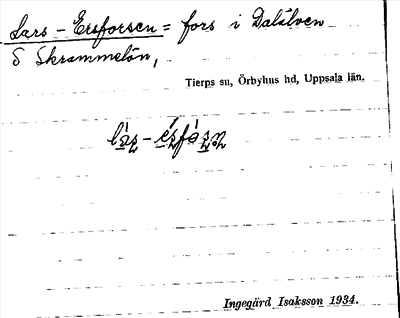 Lars-Ersforsen = fors i Dalälven
S Skrammelön,
Tierps su, Örbyhus hd, Uppsala län.
Ingegärd Isaksson 1934.